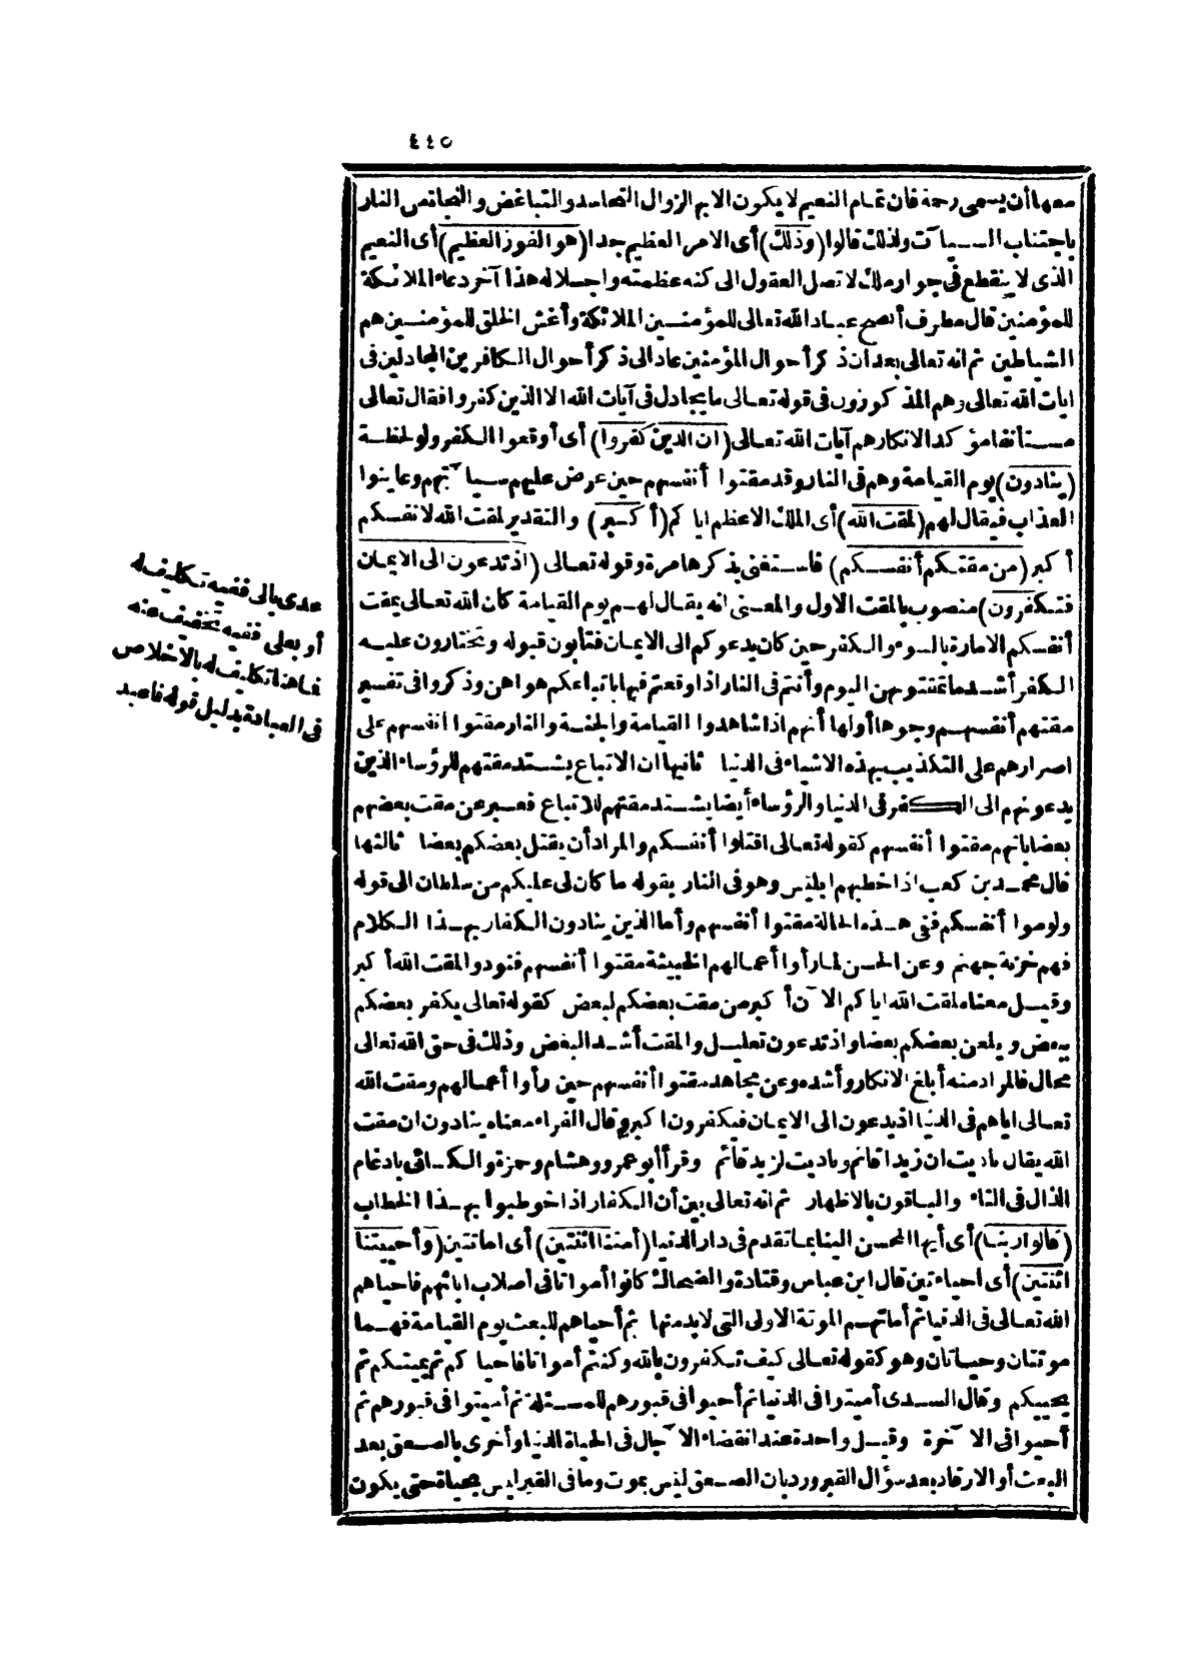 ٤٤٥
معها أن يسمى رحمة فان تمام النعيم لا يكون الا بزوال التحاسد والتباغض والنجاة من النار
باجتناب السيآت ولذلك قالوا (وذلك) أى الامر العظيم جدا (هو الفوز العظيم) أى النعيم
الذى لا ينقطع فى جوار ملك لا تصل العقول الى كنه عظمته واجلاله هذا آخر دعاء الملائكة
للمؤمنين قال مطرف أنصح عباد الله تعالى للمؤمنين الملائكة وأغش الخلق للمؤمنين هم
الشياطين ثم انه تعالى بعد ان ذكر أحوال المؤمنين عاد الى ذكر أحوال الكافرين المجادلين فى
ايات الله تعالى وهم المذكورون فى قوله تعالى ما يجادل فى آيات الله الا الذين كفروا فقال تعالى
مستأنفا مؤكدا لانكارهم آيات الله تعالى (ان الذين كفروا) أى أوقعوا الكفر ولو لحظة
(ينادون) يوم القيامة وهم فى النار وقد مقتوا أنفسهم حين عرض عليهم سيآتهم وعاينوا
العذاب فيقال لهم (لمقت الله) أى الملك الاعظم اياكم (أكبر) والتقدير لمقت الله لانفسكم
أكبر (من مقتكم أنفسكم) فاستغنى بذكرها مرة وقوله تعالى (اذ تدعون الى الايمان
فتكفرون) منصوب بالمقت الاول والمعنى انه يقال لهم يوم القيامة كان الله تعالى يمقت
أنفسكم الامارة بالسوء والكفر حين كان يدعوكم الى الايمان فتأبون قبوله وتختارون عليه
الكفر أشد مما تمقتوهن اليوم وأنتم فى النار اذا وقعتم فيها باتباعكم هواهن وذكروا فى تفسير
مقتهم أنفسهم وجوها أولها أنهم اذا شاهدوا القيامة والجنة والنار مقتوا انفسهم على
اصرارهم على التكذيب بهذه الاشياء فى الدنيا ثانيها ان الاتباع يشتد مقتهم للرؤساء الذين
يدعونهم الى الكفر فى الدنيا والرؤساء أيضا يشتد مقتهم للاتباع فعبر عن مقت بعضهم
بعضا بانهم مقتوا أنفسهم كقوله تعالى اقتلوا أنفسكم والمراد أن يقتل بعضكم بعضا ثالثها
قال محمد بن كعب اذا خطبهم ابليس وهو فى النار بقوله ما كان لى عليكم من سلطان الى قوله
ولوموا أنفسكم فنى هذه الحالة مقتوا أنفسهم وأما الذين ينادون الكفار بهذا الكلام
فهم خزنة جهنم وعن الحسن لما رأوا أعمالهم الخبيثة مقتوا أنفسهم فنودوا لمقت الله أكبر
وقيل معناه لمقت الله اياكم الآن أكبر من مقت بعضكم لبعض كقوله تعالى يكفر بعضكم
ببعض ويلعن بعضكم بعضا واذ تدعون تعليل والمقت أشد البغض وذلك فى حق الله تعالى
محال فالمراد منه أبلغ الانكار وأشده وعن مجاهد مقتوا أنفسهم حين رأوا أعمالهم ومقت الله
تعالى اياهم فى الدنيا اذ يدعون الى الايمان فيكفرون اكبر وقال الفراء معناه ينادون ان مقت
الله يقال ناديت ان زيدا قائم وناديت لزيد قائم وقرأ أبو عمرو وهشام وحمزة والكسائى بادغام
الذال فى التاء والباقون بالاظهار ثم انه تعالى بين أن الكفار اذا خوطبوا بهذا الخطاب
(قالوا ربنا) أى أيها المحسن الينا بما تقدم فى دار الدنيا (أمتنا اثنتين) أى اماتتين (وأحييتنا
اثنتين) أى احياءتين قال ابن عباس وقتادة والضحاك كانوا أمواتا فى أصلاب ابائهم فاحياهم
الله تعالى فى الدنيا ثم أماتهم الموتة الاولى التى لا بد منها ثم أحياهم للبعث يوم القيامة فهما
موتتان وحياتان وهو كقوله تعالى كيف تكفرون بالله وكنتم أمواتا فاحياكم ثم يميتكم ثم
يحييكم وقال السدى أميتوا فى الدنيا ثم أحيوا فى قبورهم للمسئلة ثم أميتوا فى قبورهم ثم
أحيوا فى الآخرة وقيل واحدة عند انقضاء الآجال فى الحياة الدنيا وأخرى بالصعق بعد
البعث أو الارقاد بعد سؤال القبر ورد بان الصعق ليس بموت وما فى القبر ليس بحياة حتى يكون
عدى بالى ففيه تكليف له
أو بعلى ففيه تخفيف عنه
فما هنا تكليف له بالاخلاص
فى العبادة بدليل قوله فاعبد